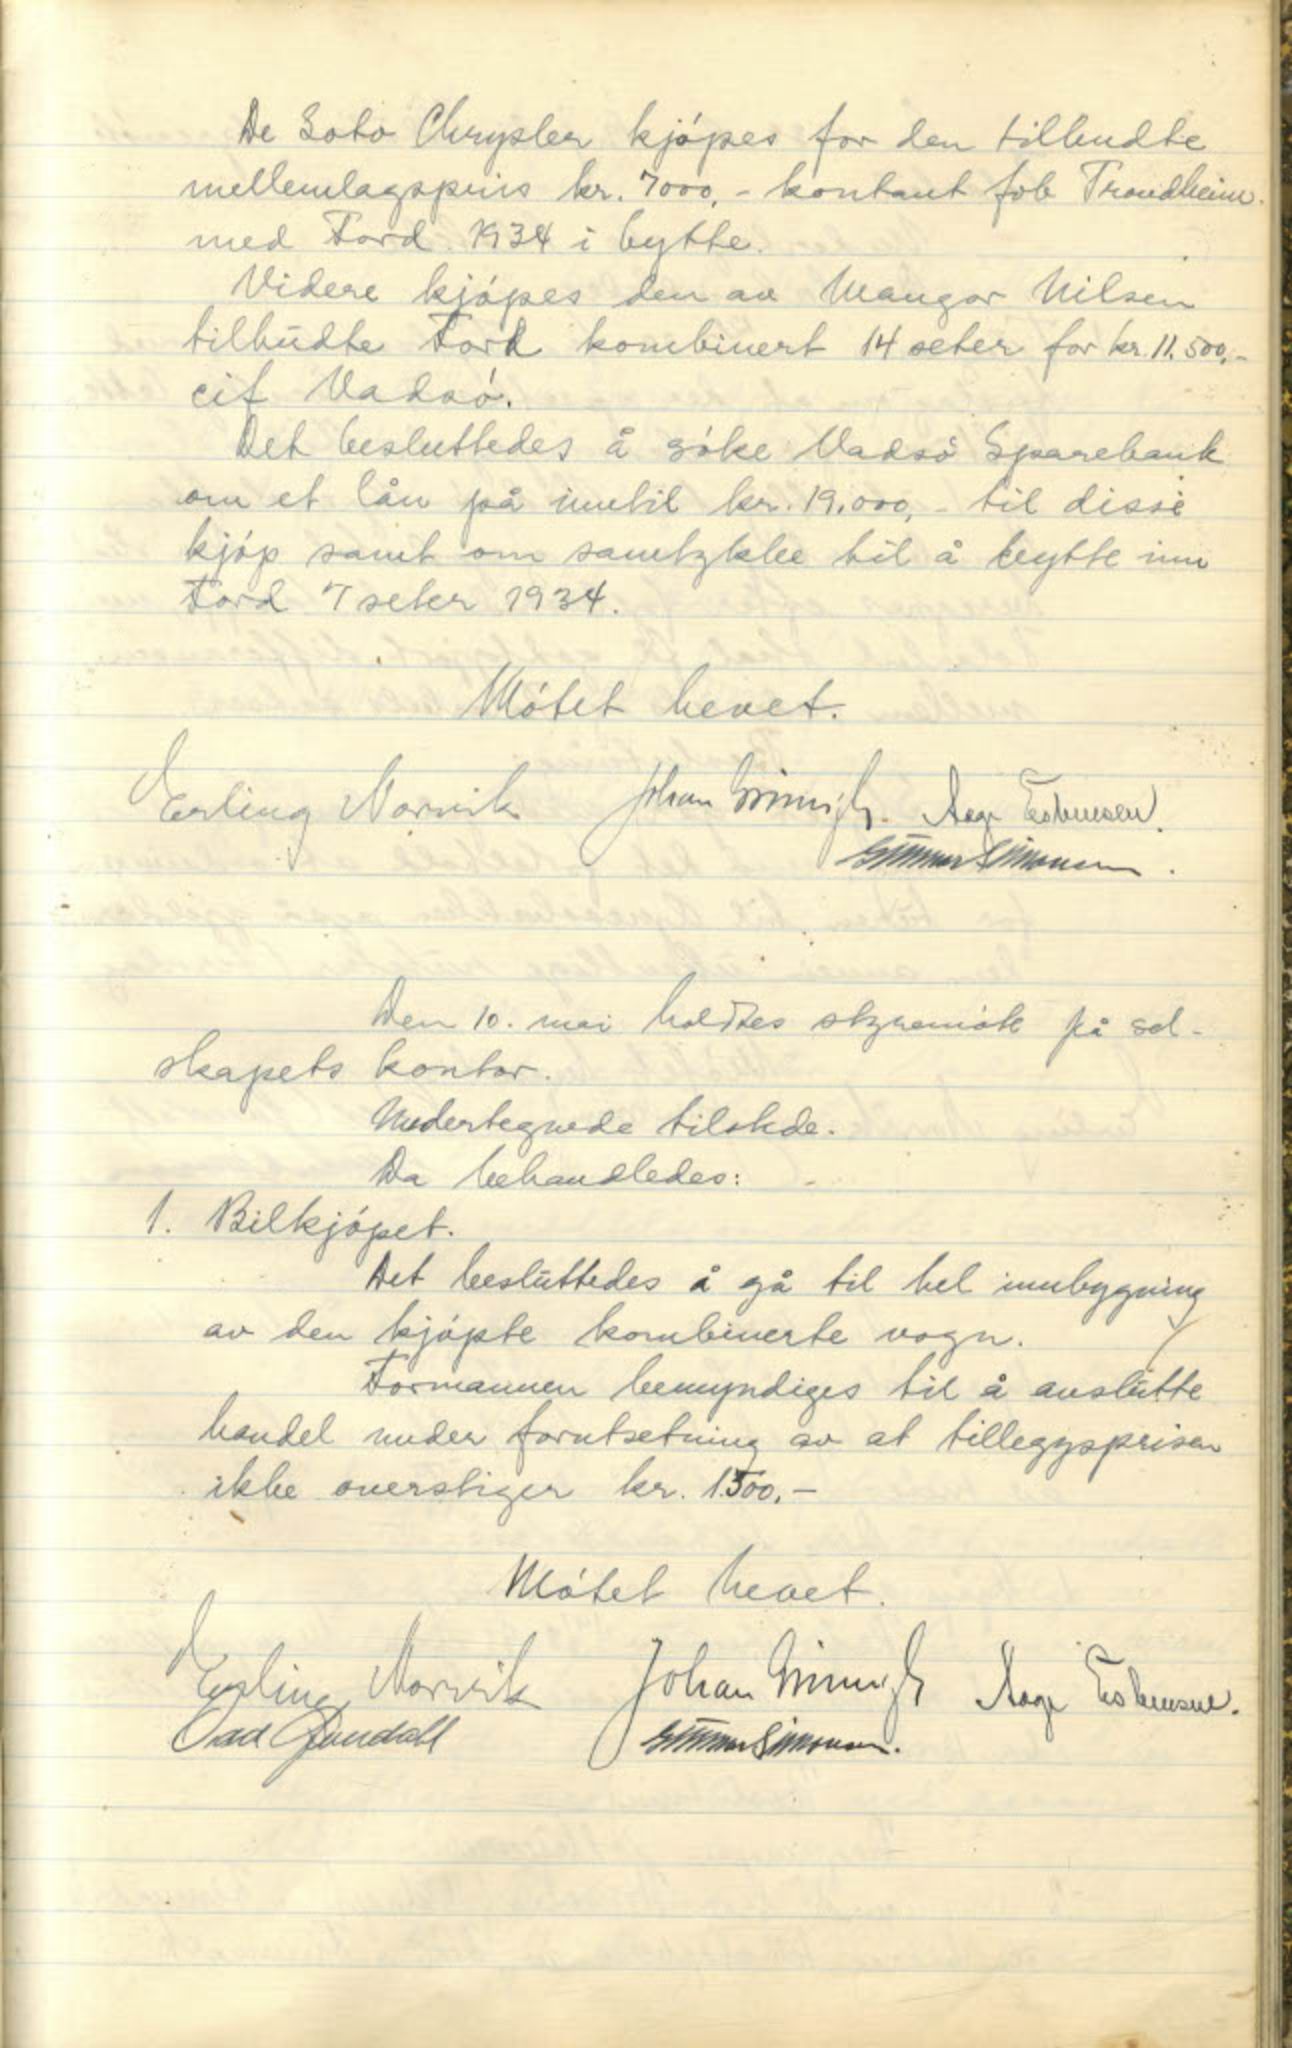 De Soto Chrysler kjópes for den tilbudte
mellemlagspris kr. 7000,- kontant fob Trondheim.
med Ford 1934 i bytte.
Videre kjópes den av Mangor Nilsen
tilbudte Ford kombinert 14 seter for kr. 11.500,-
cif Vadsó.
Det besluttedes å sóke Vadsó Sparebank
om et lån på inntil kr. 19.000,- til disse
kjóp samt om samtykke til å bytte inn
Ford 7 seter 1934.
Mótet hevet.
Erling Norvik Johan Aage Esbensen.
Gunnar Simonsen.
Den 10. mai holdtes styremóte på sel-
skapets kontor.
Undertegnede tilstede.
Da behandledes:
1. Bilkjópet.
Det besluttedes å gå til hel innbygning
av den kjópte kombinerte vogn.
Formannen bemyndiges til å avslutte
handel under forutsetning av at tilleggsprisen
ikke overstiger kr. 1500,-
Mótet hevet.
Erling Norvik Johan Aage Esbensen.
Gunnar Simonsen.